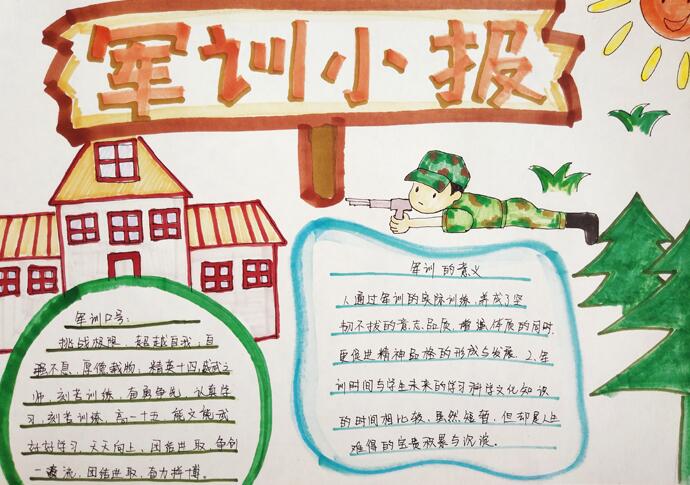 军训小报
军训口号:
挑战极限、超越自我、自
强不息、厚德载物、精英十四、威武之
师、刻苦训练、奋勇争先、认真学
习、刻苦训练、高一十五、能文能武
好好学习、天天向上、团结进取、争创
一流、团结进取、奋力拼博。
军训的意义
1.通过军训的实际训练,养成了坚
韧不拔的意志品质,增强体质的同时,
更促进精神品格的形成与发展。2.军
训时间与学生未来的学习科学文化知识
的时间相比较,虽然短暂,但却是人生
难得的宝贵积累与沉淀。